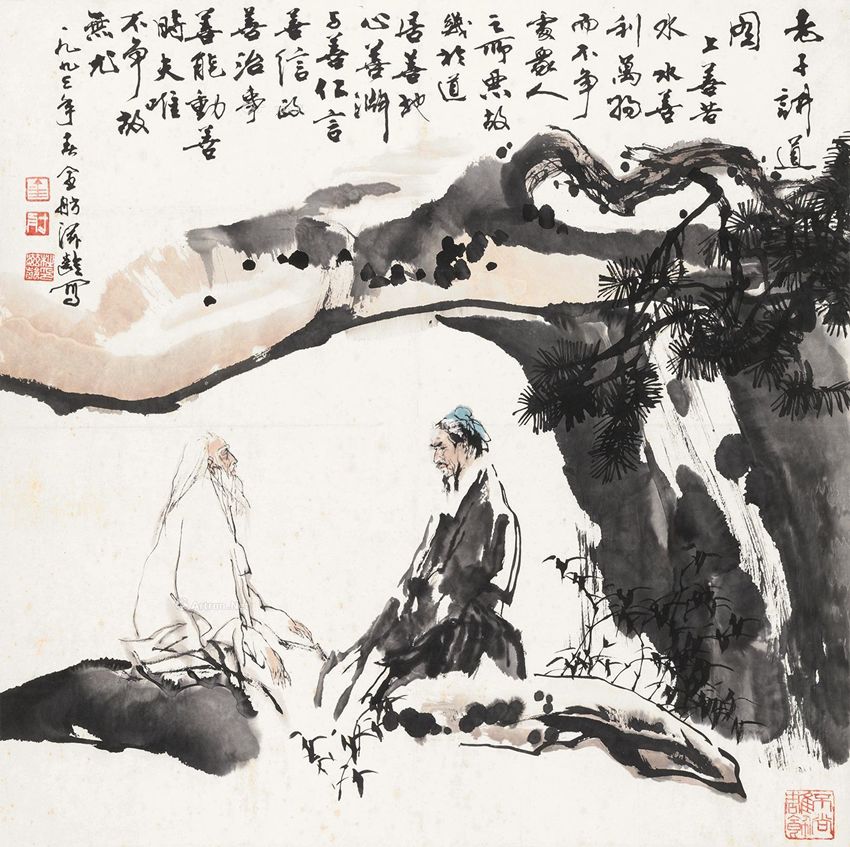 老子講道
圖
上善若
水水善
利萬物
而不争
處衆人
之所惡故
幾於道
居善地
心善淵
与善仁言
善信政
善治事
善能動善
時夫唯
不争故
無尤
一九九三年春
不尚雕飾
Artron.Net